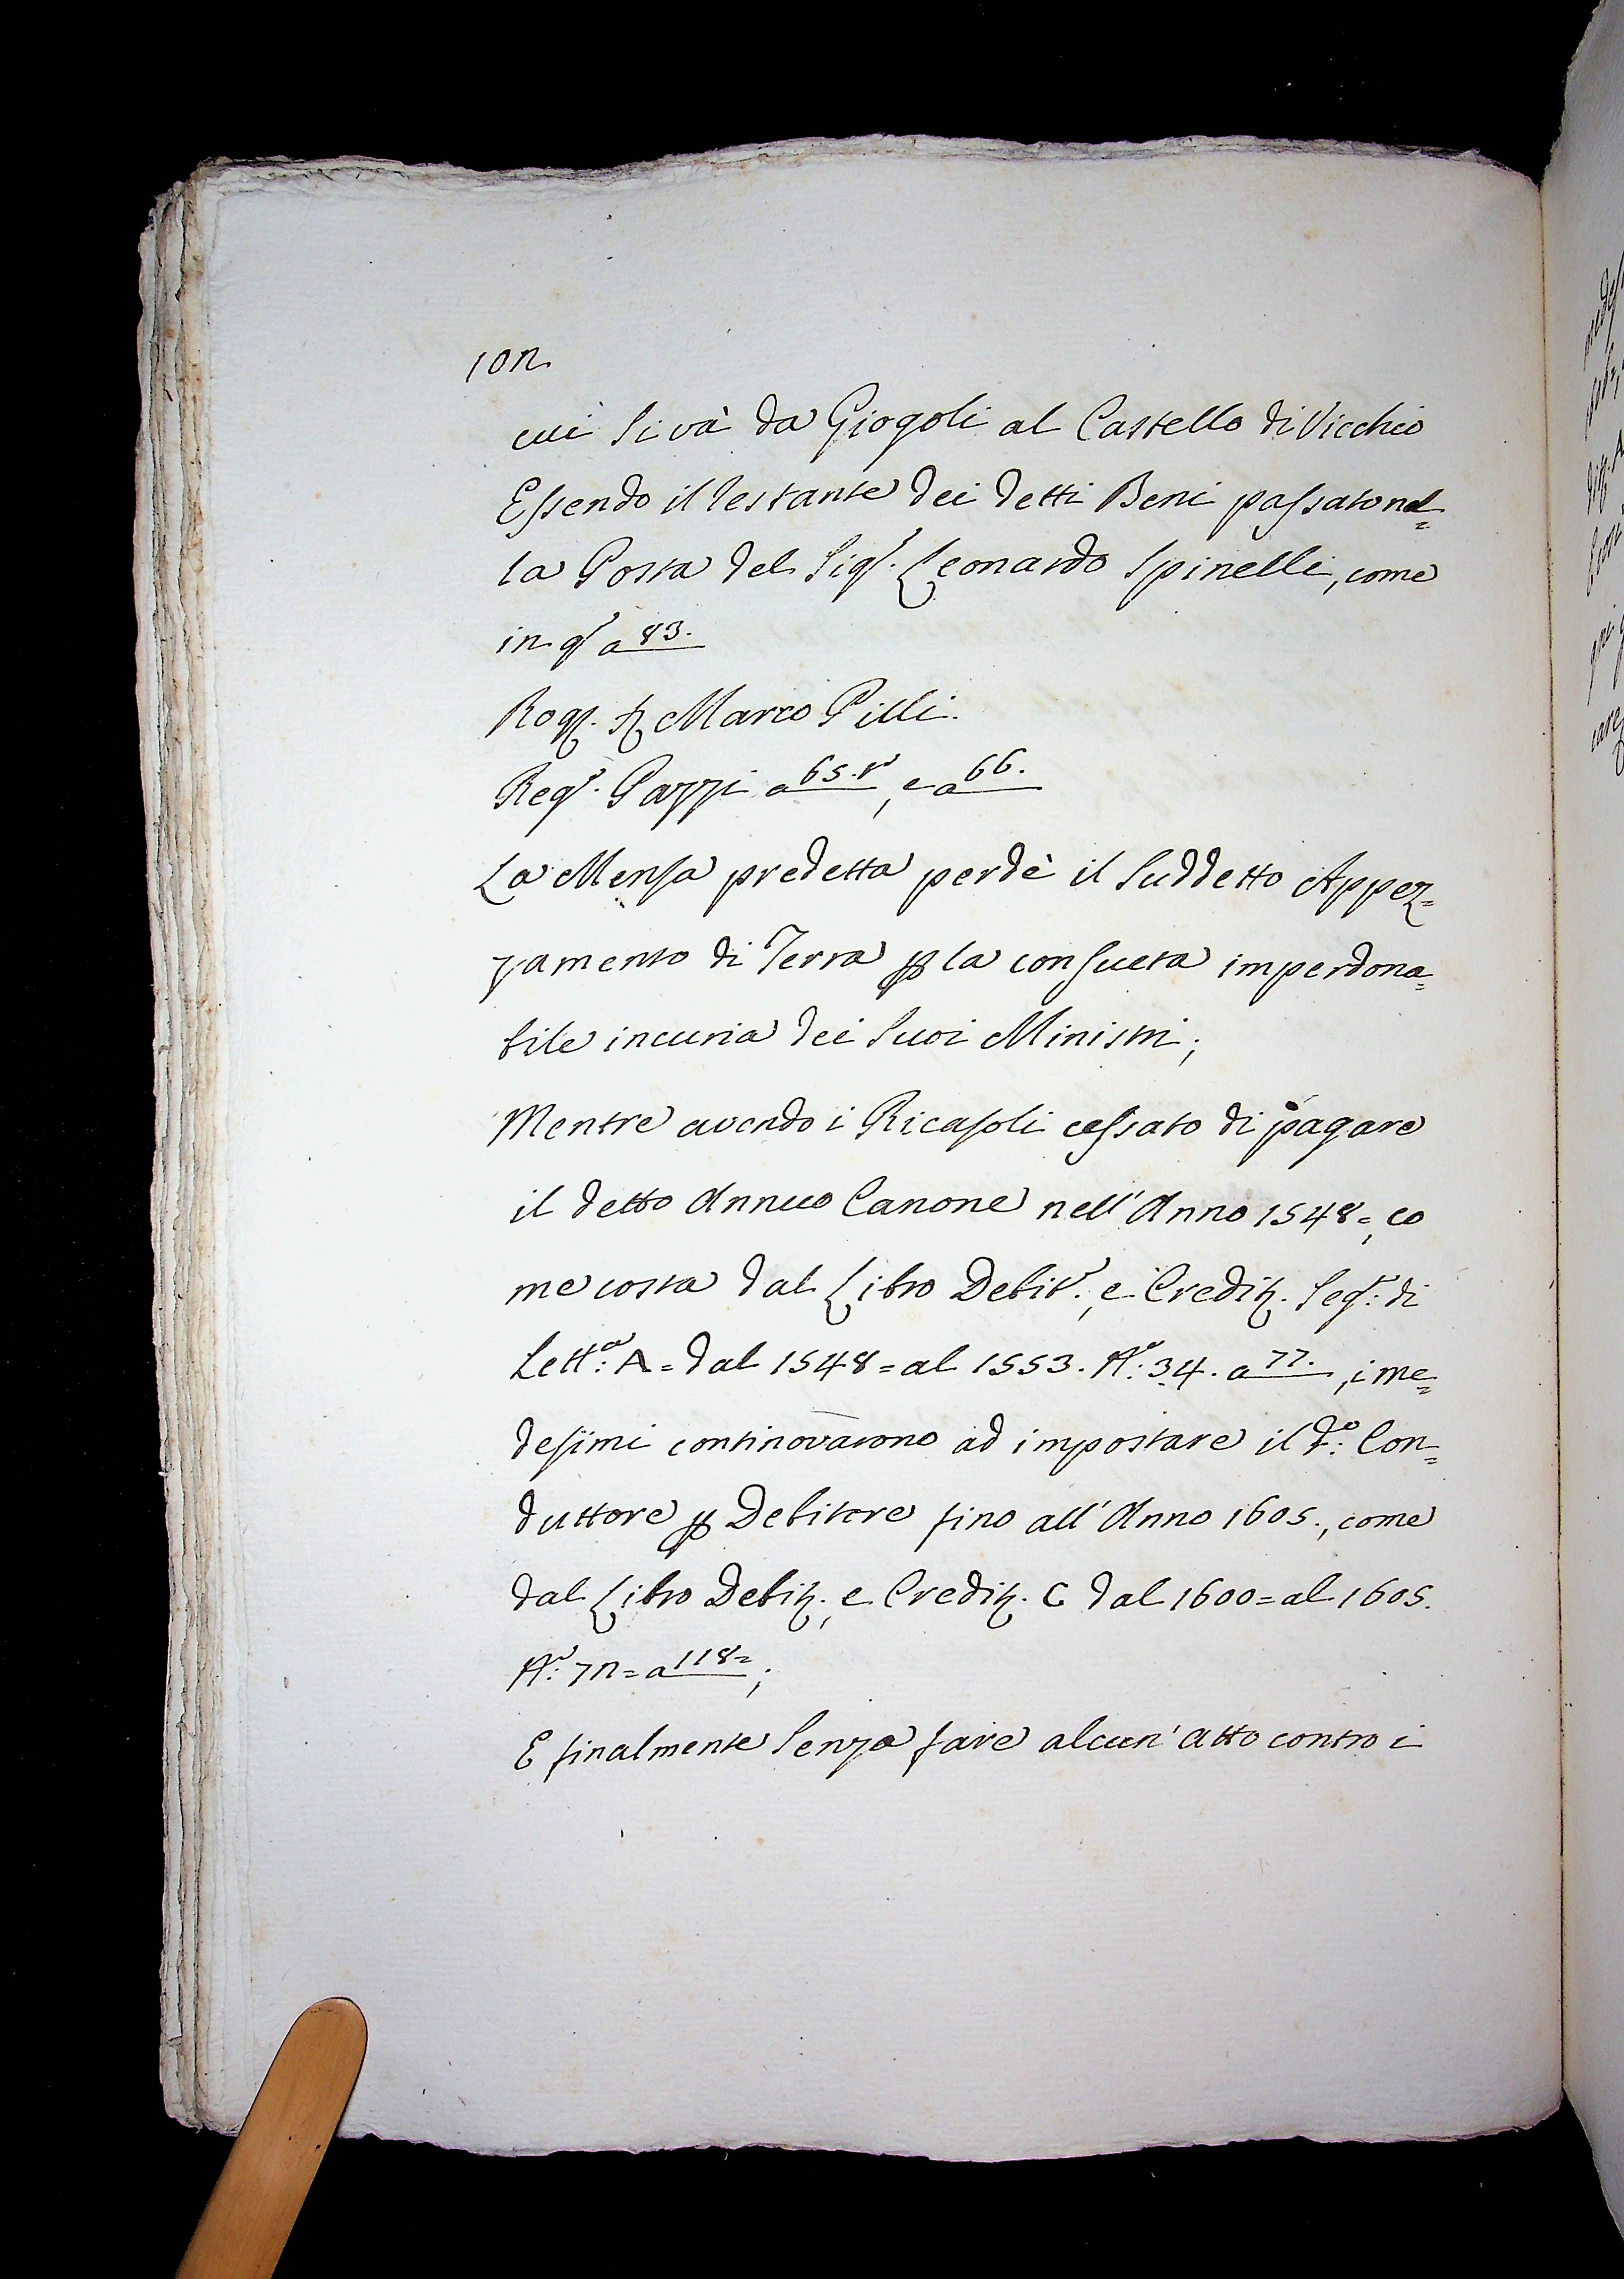 102
cui si và da Giogoli al Castello di Vicchio
Essendo il restante dei detti Beni passato nel=
la Posta del Sigr. Leonardo Spinelli, come
in qo a 83.
Rog. Marco Pilli.
Regо. Pazzi a 65.to, e a 66.
La Mensa predetta perdè il suddetto Appez=
zamento di Terra p la consueta imperdona=
bile incuria dei suoi Ministri;
Mentre avendo i Ricasoli cessato di pagare
il detto Annuo Canone nell' Anno 1548=, co
me costa dal Libro Debitri., e Credit. Segto: di
Letta: A= dal 1548= al 1553. No: 34. a 77., i me=
desimi continovarono ad impostare il do: Con=
duttore p Debitore fino all' Anno 1605., come
dal Libro Debit., e Credit. C dal 1600= al 1605.
No: 72= a 118=;
E finalmente senza fare alcun' atto contro i